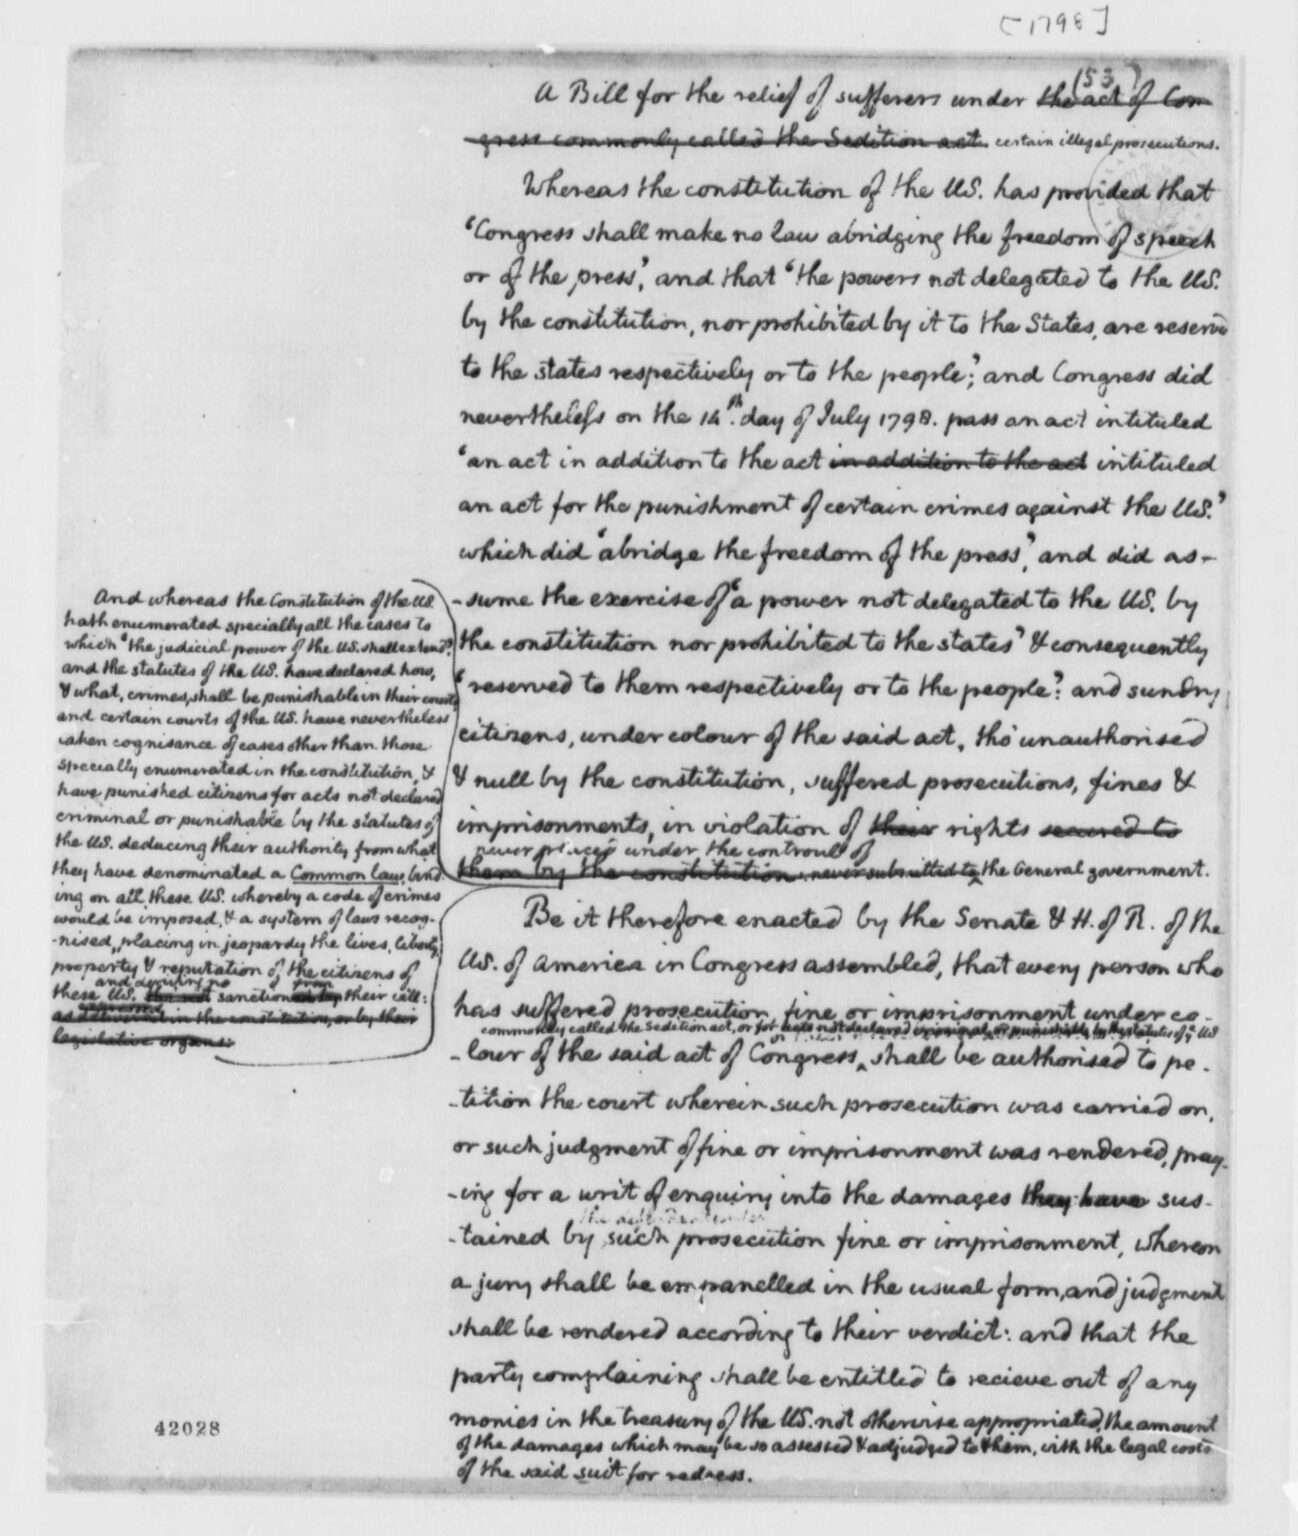 [1798]
(53)
A Bill for the relief of sufferers under the act of Con
gress commonly called the Sedition act. certain illegal prosecutions.
Whereas the constitution of the US. has provided that
'Congress shall make no law abridging the freedom of speech
or of the press', and that 'the powers not delegated to the US.
by the constitution, nor prohibited by it to the States, are reserved
to the states respectively or to the people;' and Congress did
nevertheless on the 14th. day of July 1798. pass an act intituled
'an act in addition to the act in addition to the act intituled
an act for the punishment of certain crimes against the US.'
which did 'abridge the freedom of the press', and did as-
-sume the exercise of 'a power not delegated to the US. by
the constitution nor prohibited to the states' & consequently
'reserved to them respectively or to the people': and sundry
citizens, under colour of the said act, tho' unauthorised
& null by the constitution, suffered prosecutions, fines &
imprisonments, in violation of their rights secured to
never placed under the controul of
them by the constitution. never submitted to the General government.
And whereas the Constitution of the US.
hath enumerated specially all the cases to
which 'the judicial power of the US. shall extend',
and the statutes of the US. have declared how,
& what, crimes, shall be punishable in their courts,
and certain courts of the US. have nevertheless
taken cognisance of cases other than those
specially enumerated in the constitution, &
have punished citizens for acts not declared
criminal or punishable by the statutes of
the US. deducing their authority from what
they have denominated a Common law, bind
ing on all these US. whereby a code of crimes
would be imposed, & a system of laws recog-
-nised, placing in jeopardy the lives, liberty,
property & reputation of the citizens of
and deriving no from
these US. sanction their will:
as delivered in the constitution, or by their
legislative organs:
Be it therefore enacted by the Senate & H. of R. of the
US. of America in Congress assembled, that every person who
has suffered prosecution, fine or imprisonment under co-
commonly called the Sedition act, or for acts not declared criminal or punishable by the statutes of the US
-lour of the said act of Congress, shall be authorised to pe-
-tition the court wherein such prosecution was carried on,
or such judgment of fine or imprisonment was rendered, pray-
-ing for a writ of enquiry into the damages they have sus-
-tained by such prosecution fine or imprisonment, whereon
a jury shall be empanelled in the usual form, and judgment
shall be rendered according to their verdict: and that the
party complaining shall be entitled to recieve out of any
monies in the treasury of the US. not otherwise appropriated, the amount
of the damages which may be so assessed & adjudged to them, with the legal costs
of the said suit for redress.
42028